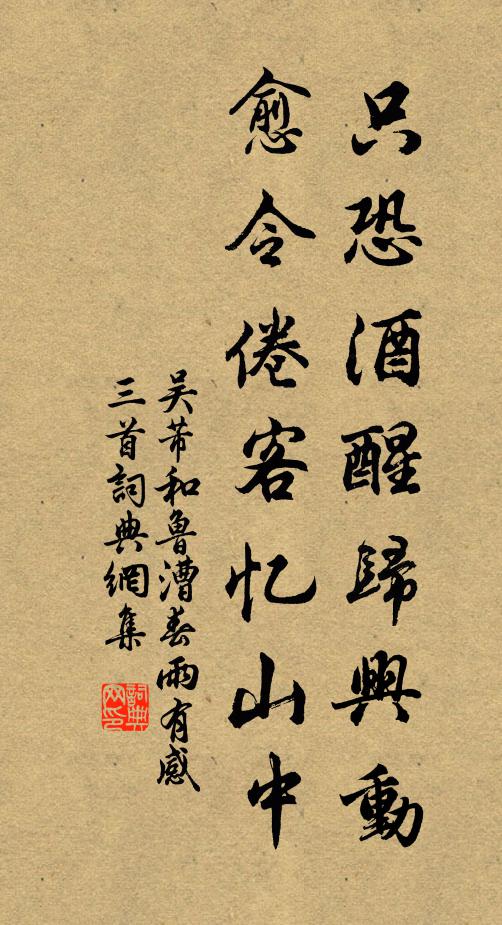 只恐酒醒歸興動
愈令倦客忆山中
吴芾和魯漕春雨有感
三首詞典網集
詞典
网印